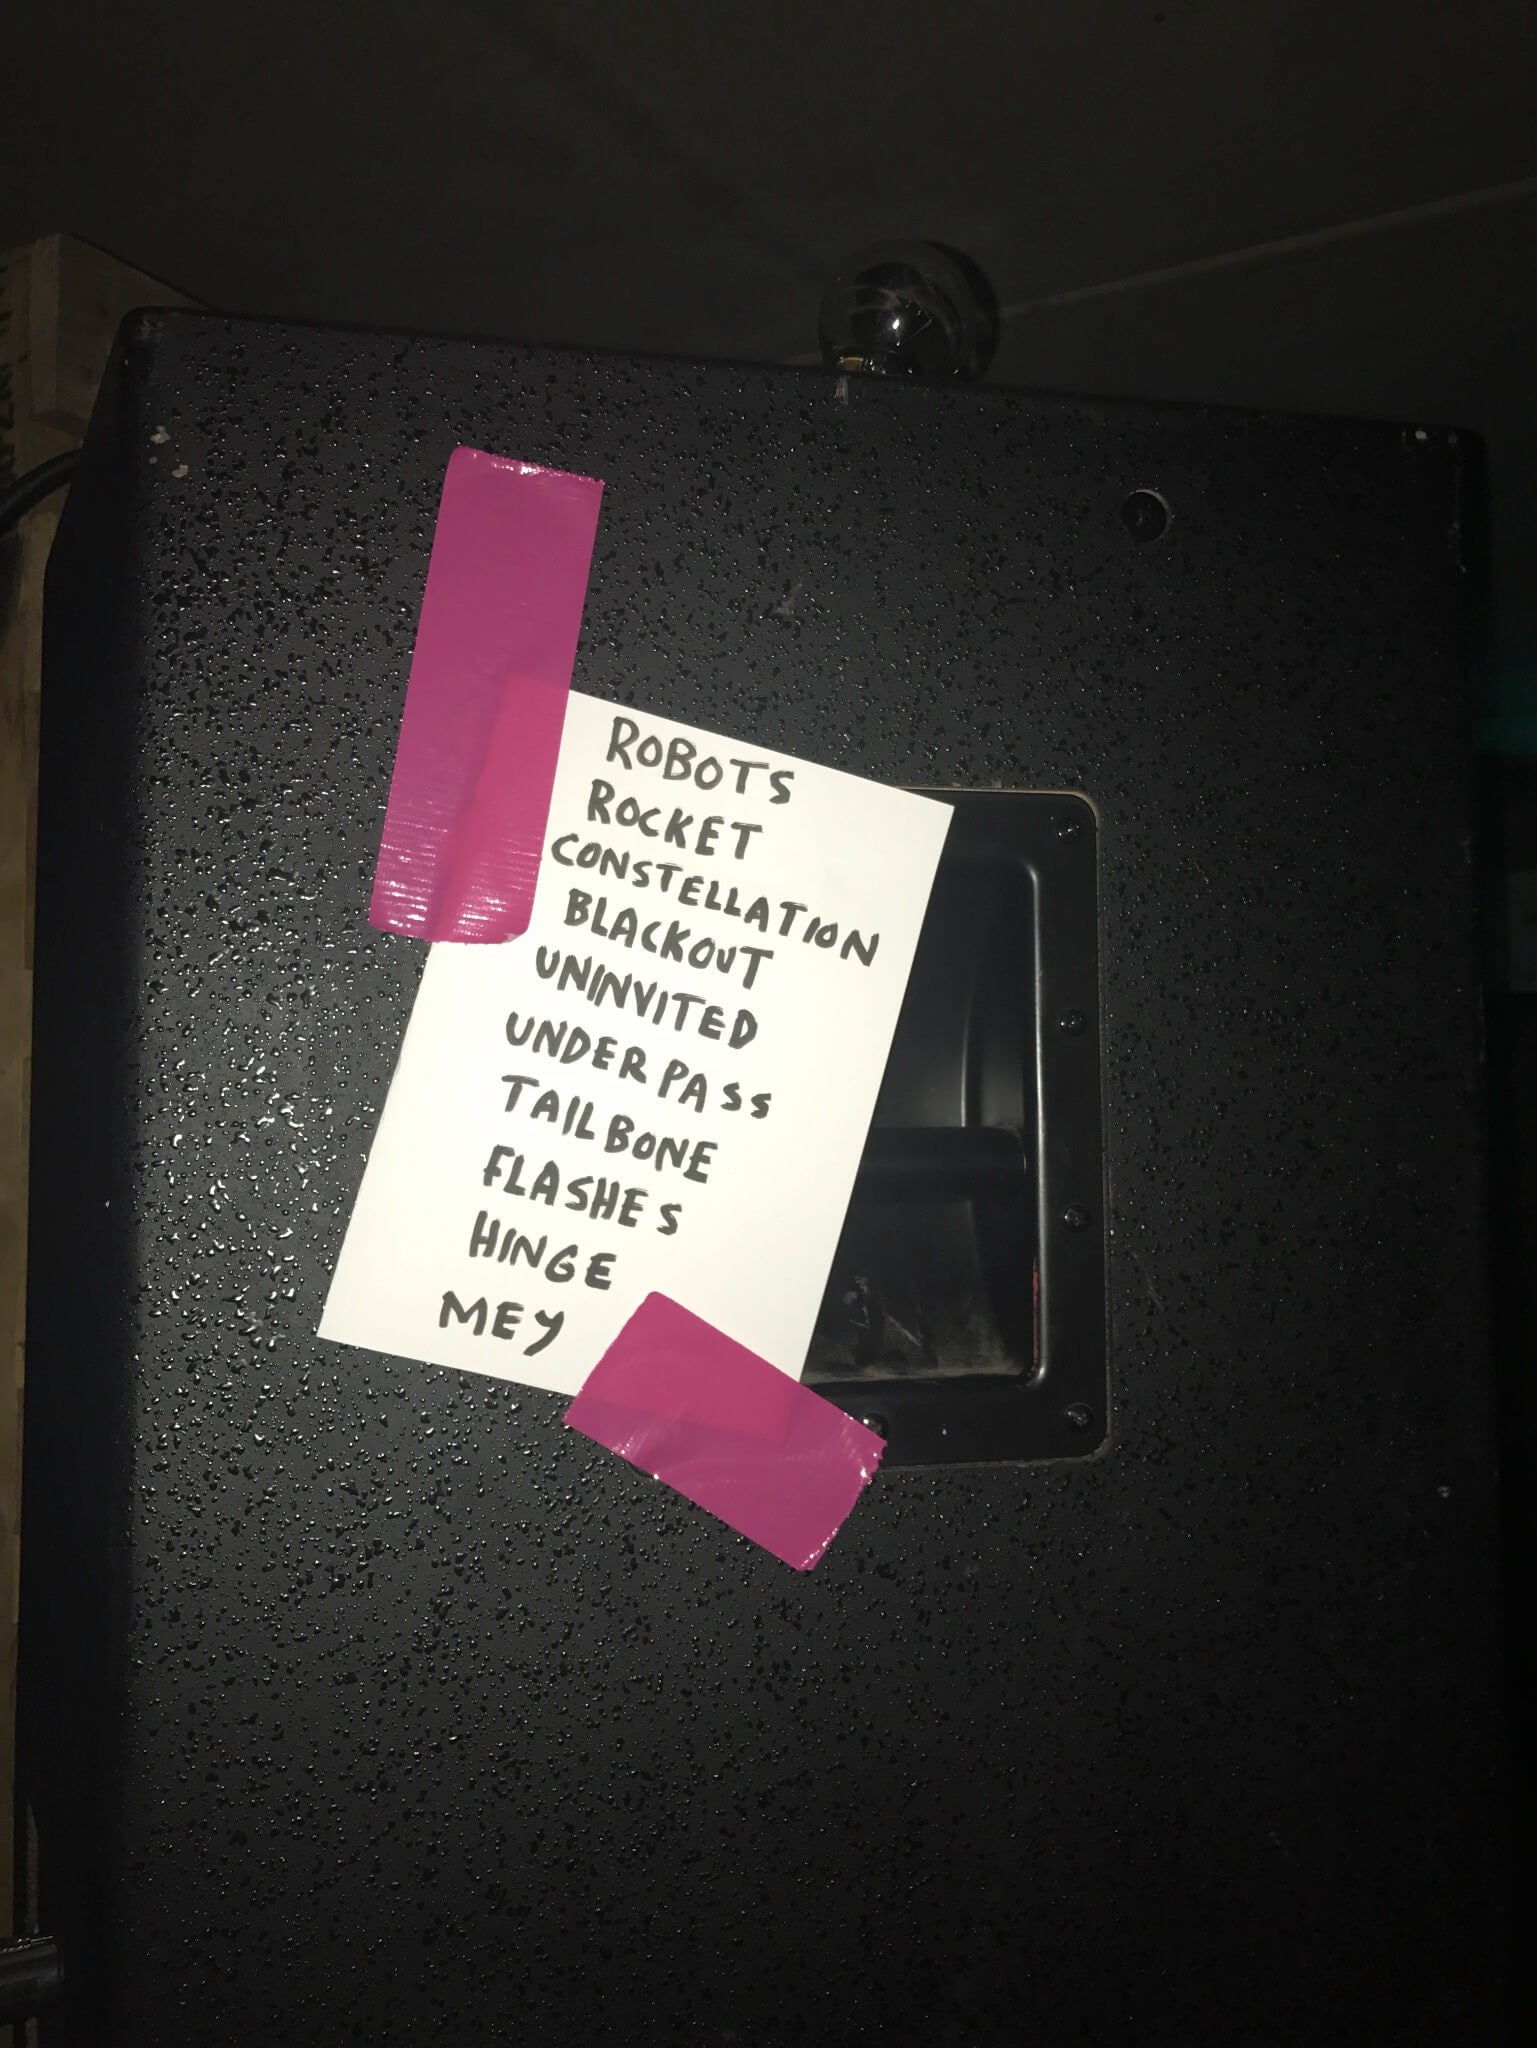 ROBOTS
ROCKET
CONSTELLATION
BLACKOUT
UNINVITED
UNDERPASS
TAILBONE
FLASHES
HINGE
MEY